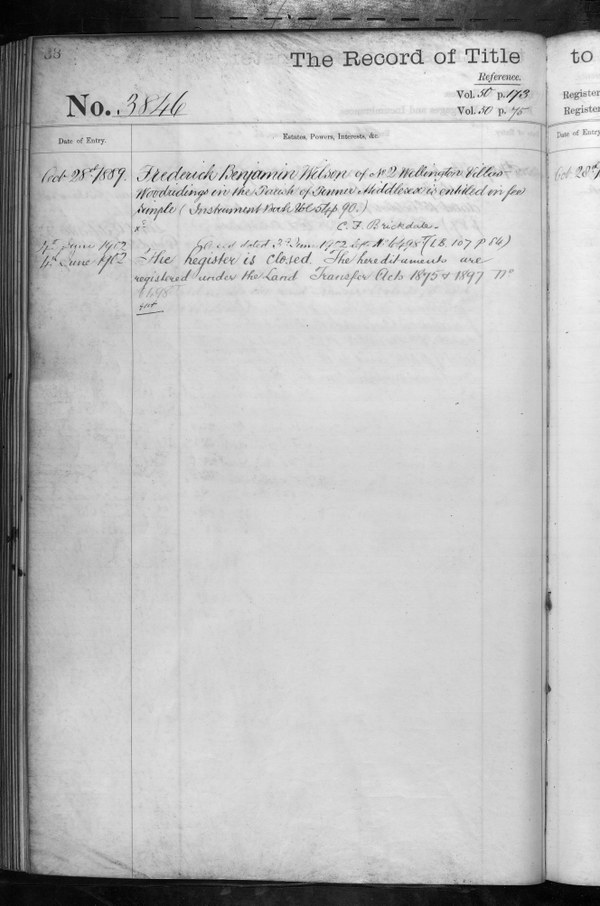 33
The Record of Title
Reference.
No. 3846
Vol. 50 p. 173
Vol. 50 p. 75
Date of Entry.
Estates, Powers, Interests, &c.
Oct 28th 1889
Frederick Benjamin Wilson of No 2 Wellington Villas
Woodridings in the Parish of Pinner Middlesex is entitled in fee
simple (Instrument Book Vol 51 pp 90.)
C. F. Brickdale.
4th June 1902
dated 3rd June 1902 No 6498 (I.B. 107 p 54)
4th June 1902
The Register is closed. The hereditaments are
registered under the Land Transfer Acts 1875 & 1897 No
to
Register
Register
Date of Entry
Oct 28th